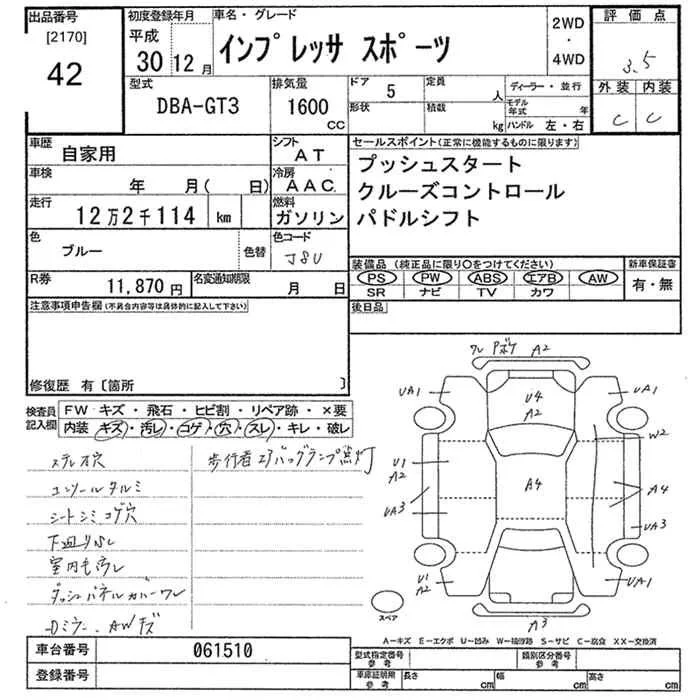 出品番号
[2170]
42
初度登録年月
平成
30年 12月
車名・グレード
インプレッサ スポーツ
2WD
・
4WD
評価点
3.5
外装 内装
C C
型式
DBA-GT3
排気量
1600
CC
ドア 5
形状
定員 人
積載 kg
ディーラー・並行
モデル年式 年
ハンドル 左・右
車歴
自家用
シフト
AT
車検
年 月( 日)
冷房
AAC
走行
12万2千114 km
燃料
ガソリン
色
ブルー
色替
色コード
J8U
R券
11,870円
名変通知期限
月 日
セールスポイント(正常に機能するものに限ります)
プッシュスタート
クルーズコントロール
パドルシフト
装備品 (純正品に限り○をつけてください)
PS PW ABS エアB AW
SR ナビ TV カワ
新車保証書
有・無
後日品
注意事項申告欄(不具合内容等は具体的に記入して下さい)
修復歴 有〔箇所 〕
検査員記入欄
FW キズ・飛石・ヒビ割・リペア跡・×要
内装 キズ・汚レ・コゲ・穴・スレ・キレ・破レ
ステレオ穴
コンソールタルミ
シートシミコゲ穴
下廻りサビ
室内モウレ
ダッシュパネルカバーワレ
歩行者エアバッグランプ点灯
ワレ Pボケ A2
UA1
U4
A2
UA1
W2
U1
A2
A4
A4
UA3
UA3
U1
A2
UA1
A3
スペア
A−キズ E−エクボ U−凹み W−補修跡 S−サビ C−腐食 XX−交換済
車台番号
061510
登録番号
型式指定番号
参考
類別区分番号
参考
車庫証明用
参考
長さ cm
幅 cm
高さ cm